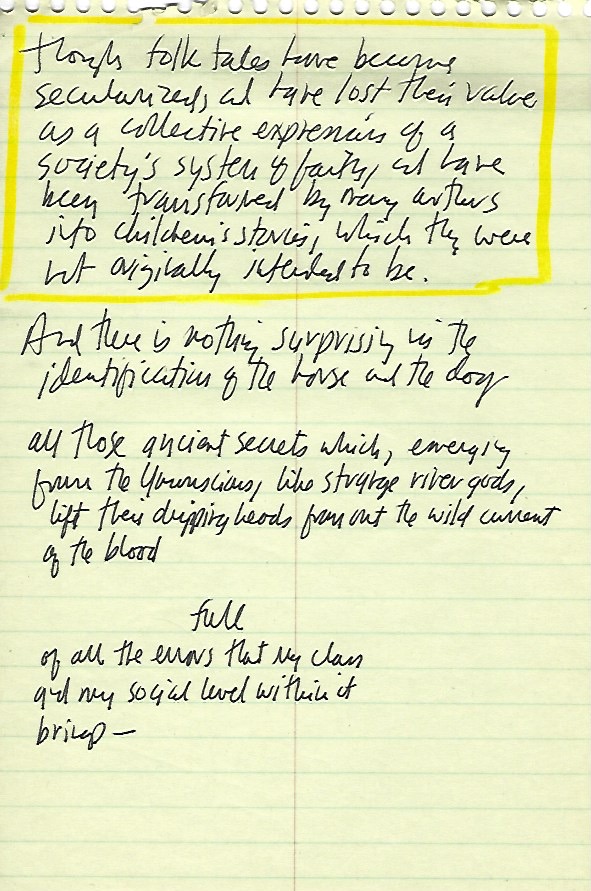 though folk tales have become
secularized, and have lost their value
as a collective expression of a
society's system of faith, and have
been transformed by many authors
into children's stories, which they were
not originally intended to be.
And there is nothing surprising in the
identification of the horse and the dog
all those ancient secrets which, emerging
from the Unconscious, like strange river gods,
lift their dripping heads from out the wild current
of the blood
full
of all the errors that my class
and my social level within it
bring —